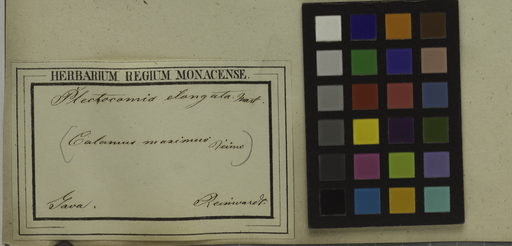 HERBARIUM REGIUM MONACENSE.
Plectocomia elongata Mart.
(Calamus maximus Reinw)
Java. Reinwardt.